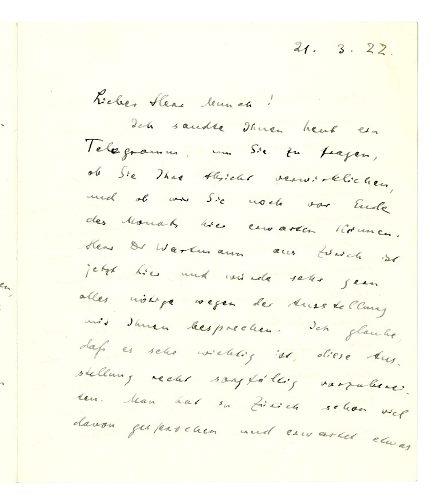 21. 3. 22.
Lieber Herr Munch!
Ich sandte Ihnen heut ein
Telegramm, um Sie zu fragen,
ob Sie Ihre Absicht verwirklichen,
und ob wir Sie noch vor Ende
des Monats hier erwarten können.
Herr Dr Wartmann aus Zürich ist
jetzt hier und würde sehr gern
alles nötige wegen der Ausstellung
mit Ihnen besprechen. Ich glaube
daß es sehr wichtig ist, diese Aus-
stellung recht sorgfältig vorzuberei-
ten. Man hat in Zürich schon viel
davon gesprochen und erwartet etwas
en,